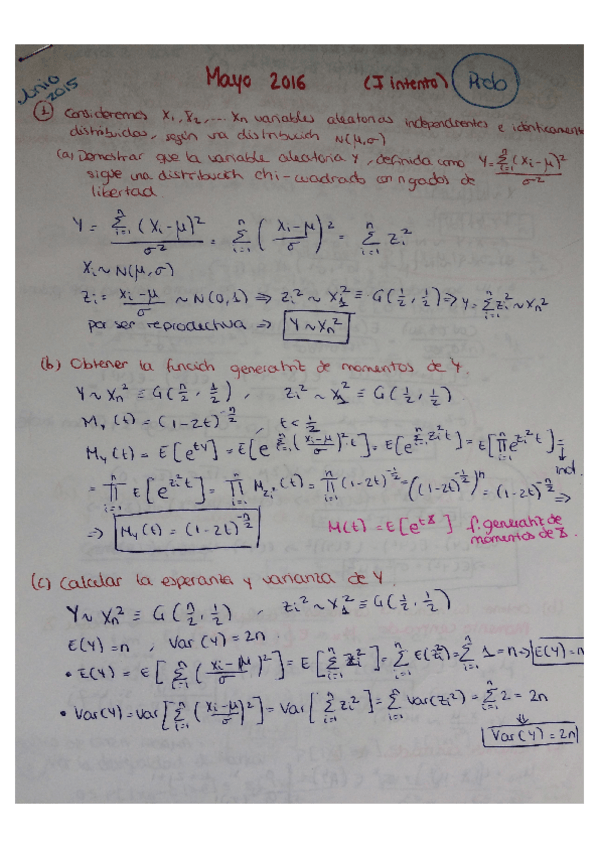 Junio 2015
Mayo 2016 (I intento) Prob
① Consideremos X₁, X₂, ... Xn variables aleatorias independientes e idénticamente
distribuidas, según una distribución N(μ,σ)
(a) Demostrar que la variable aleatoria Y, definida como Y = Σ_{i=1}^{n} (Xi-μ)² / σ²
sigue una distribución chi-cuadrado con n gados de
libertad.
Y = Σ_{i=1}^{n} (Xi-μ)² / σ² = Σ_{i=1}^{n} ((Xi-μ)/σ)² = Σ_{i=1}^{n} Zi²
Xi ~ N(μ,σ)
Zi = (Xi-μ)/σ ~ N(0,1) ⇒ Zi² ~ X₁² ≡ G(1/2, 1/2) ⇒ Y = Σ_{i=1}^{n} Zi² ~ Xn²
por ser reproductiva ⇒ Y ~ Xn²
(b) Obtener la función generatriz de momentos de Y.
Y ~ Xn² ≡ G(n/2, 1/2), Zi² ~ X₁² ≡ G(1/2, 1/2)
My(t) = (1-2t)^{-n/2}, t < 1/2
My(t) = E[e^{tY}] = E[e^{Σ_{i=1}^{n} ((Xi-μ)/σ)² t}] = E[e^{Σ_{i=1}^{n} Zi² t}] = E[Π_{i=1}^{n} e^{Zi² t}] =
ind.
= Π_{i=1}^{n} E[e^{Zi² t}] = Π_{i=1}^{n} M_{Zi²}(t) = Π_{i=1}^{n} (1-2t)^{-1/2} = ((1-2t)^{-1/2})^n = (1-2t)^{-n/2} ⇒
⇒ My(t) = (1-2t)^{-n/2} M(t) = E[e^{tX}] f. generatriz de
momentos de X.
(c) Calcular la esperanza y varianza de Y.
Y ~ Xn² ≡ G(n/2, 1/2), Zi² ~ X₁² ≡ G(1/2, 1/2)
E(Y) = n, Var(Y) = 2n.
• E(Y) = E[Σ_{i=1}^{n} ((Xi-μ)/σ)²] = E[Σ_{i=1}^{n} Zi²] = Σ_{i=1}^{n} E(Zi²) = Σ_{i=1}^{n} 1 = n ⇒ E(Y) = n
• Var(Y) = Var[Σ_{i=1}^{n} ((Xi-μ)/σ)²] = Var[Σ_{i=1}^{n} Zi²] = Σ_{i=1}^{n} Var(Zi²) = Σ_{i=1}^{n} 2 = 2n
⇓
Var(Y) = 2n